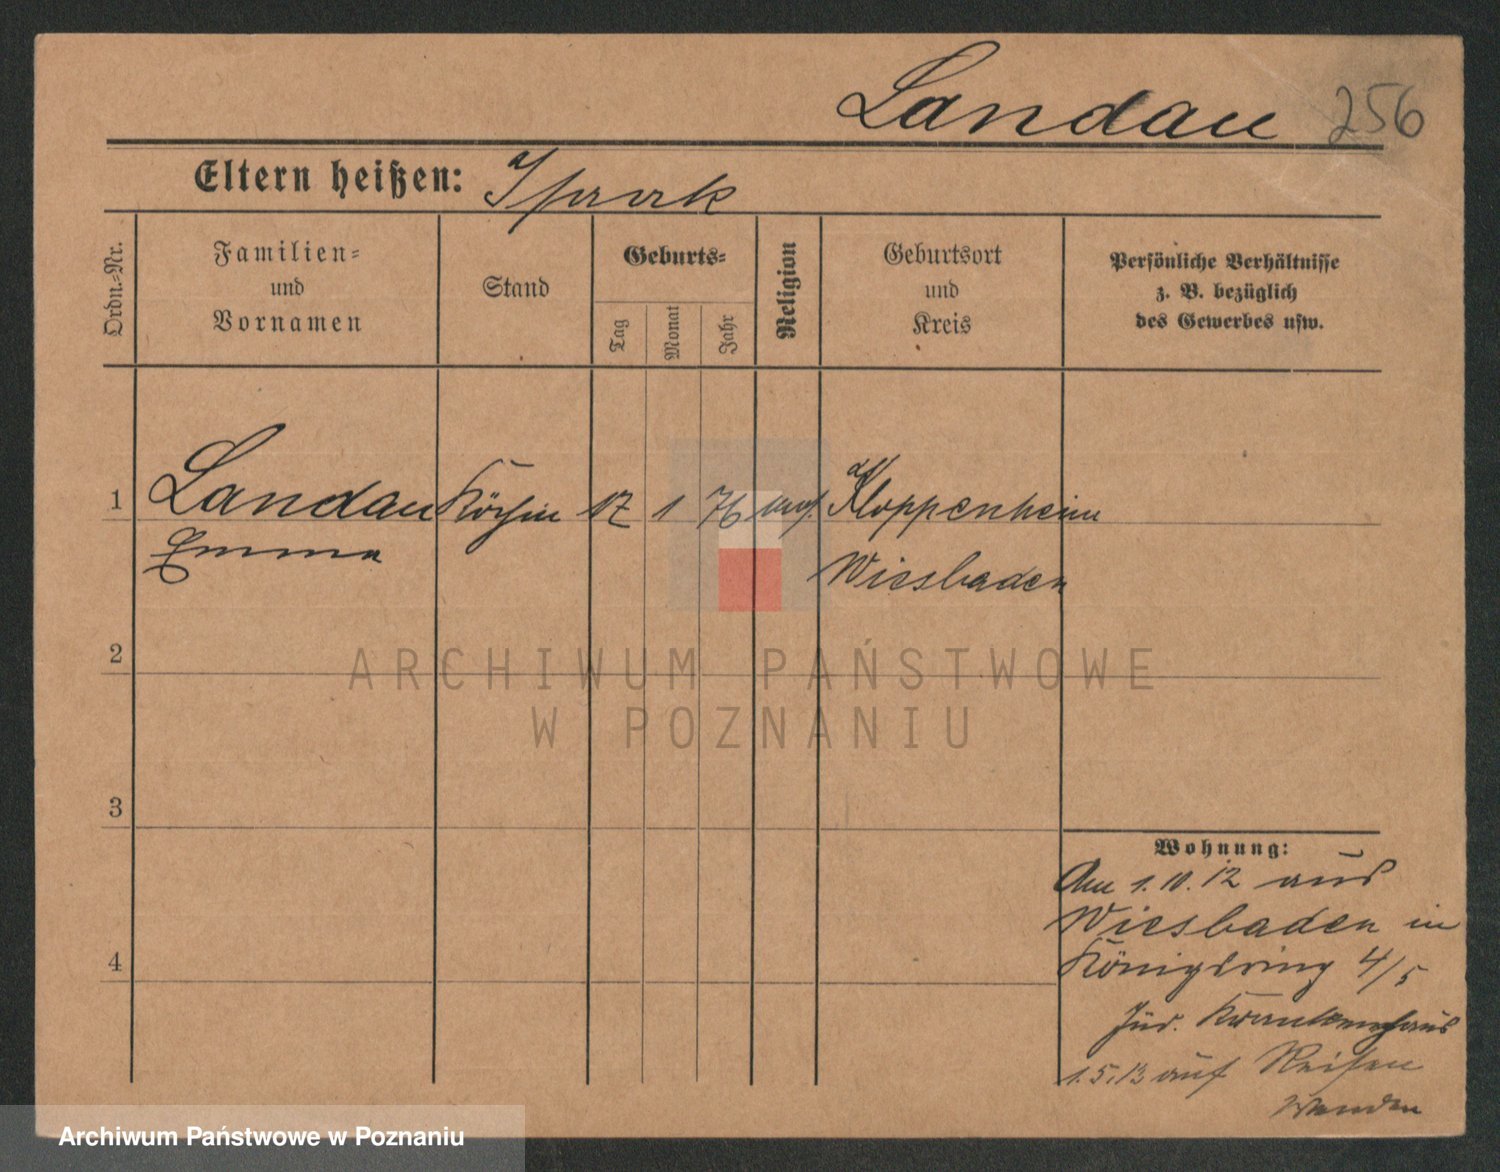 Landau 256
Eltern heißen: Isaak
Ordn.-Nr.
Familien-
und
Vornamen
Stand
Geburts-
Tag
Monat
Jahr
Religion
Geburtsort
und
Kreis
Persönliche Verhältnisse
z. B. bezüglich
des Gewerbes usw.
1 Landau Köchin 17 1 76 Kloppenheim
Emma
Wiesbaden
2
3
4
Wohnung:
Am 1.10.12 aus
Wiesbaden in
Königsring 4/5
Jüd. Krankenhaus
1.5.13 auf Reisen
ARCHIWUM PAŃSTWOWE
W POZNANIU
Archiwum Państwowe w Poznaniu